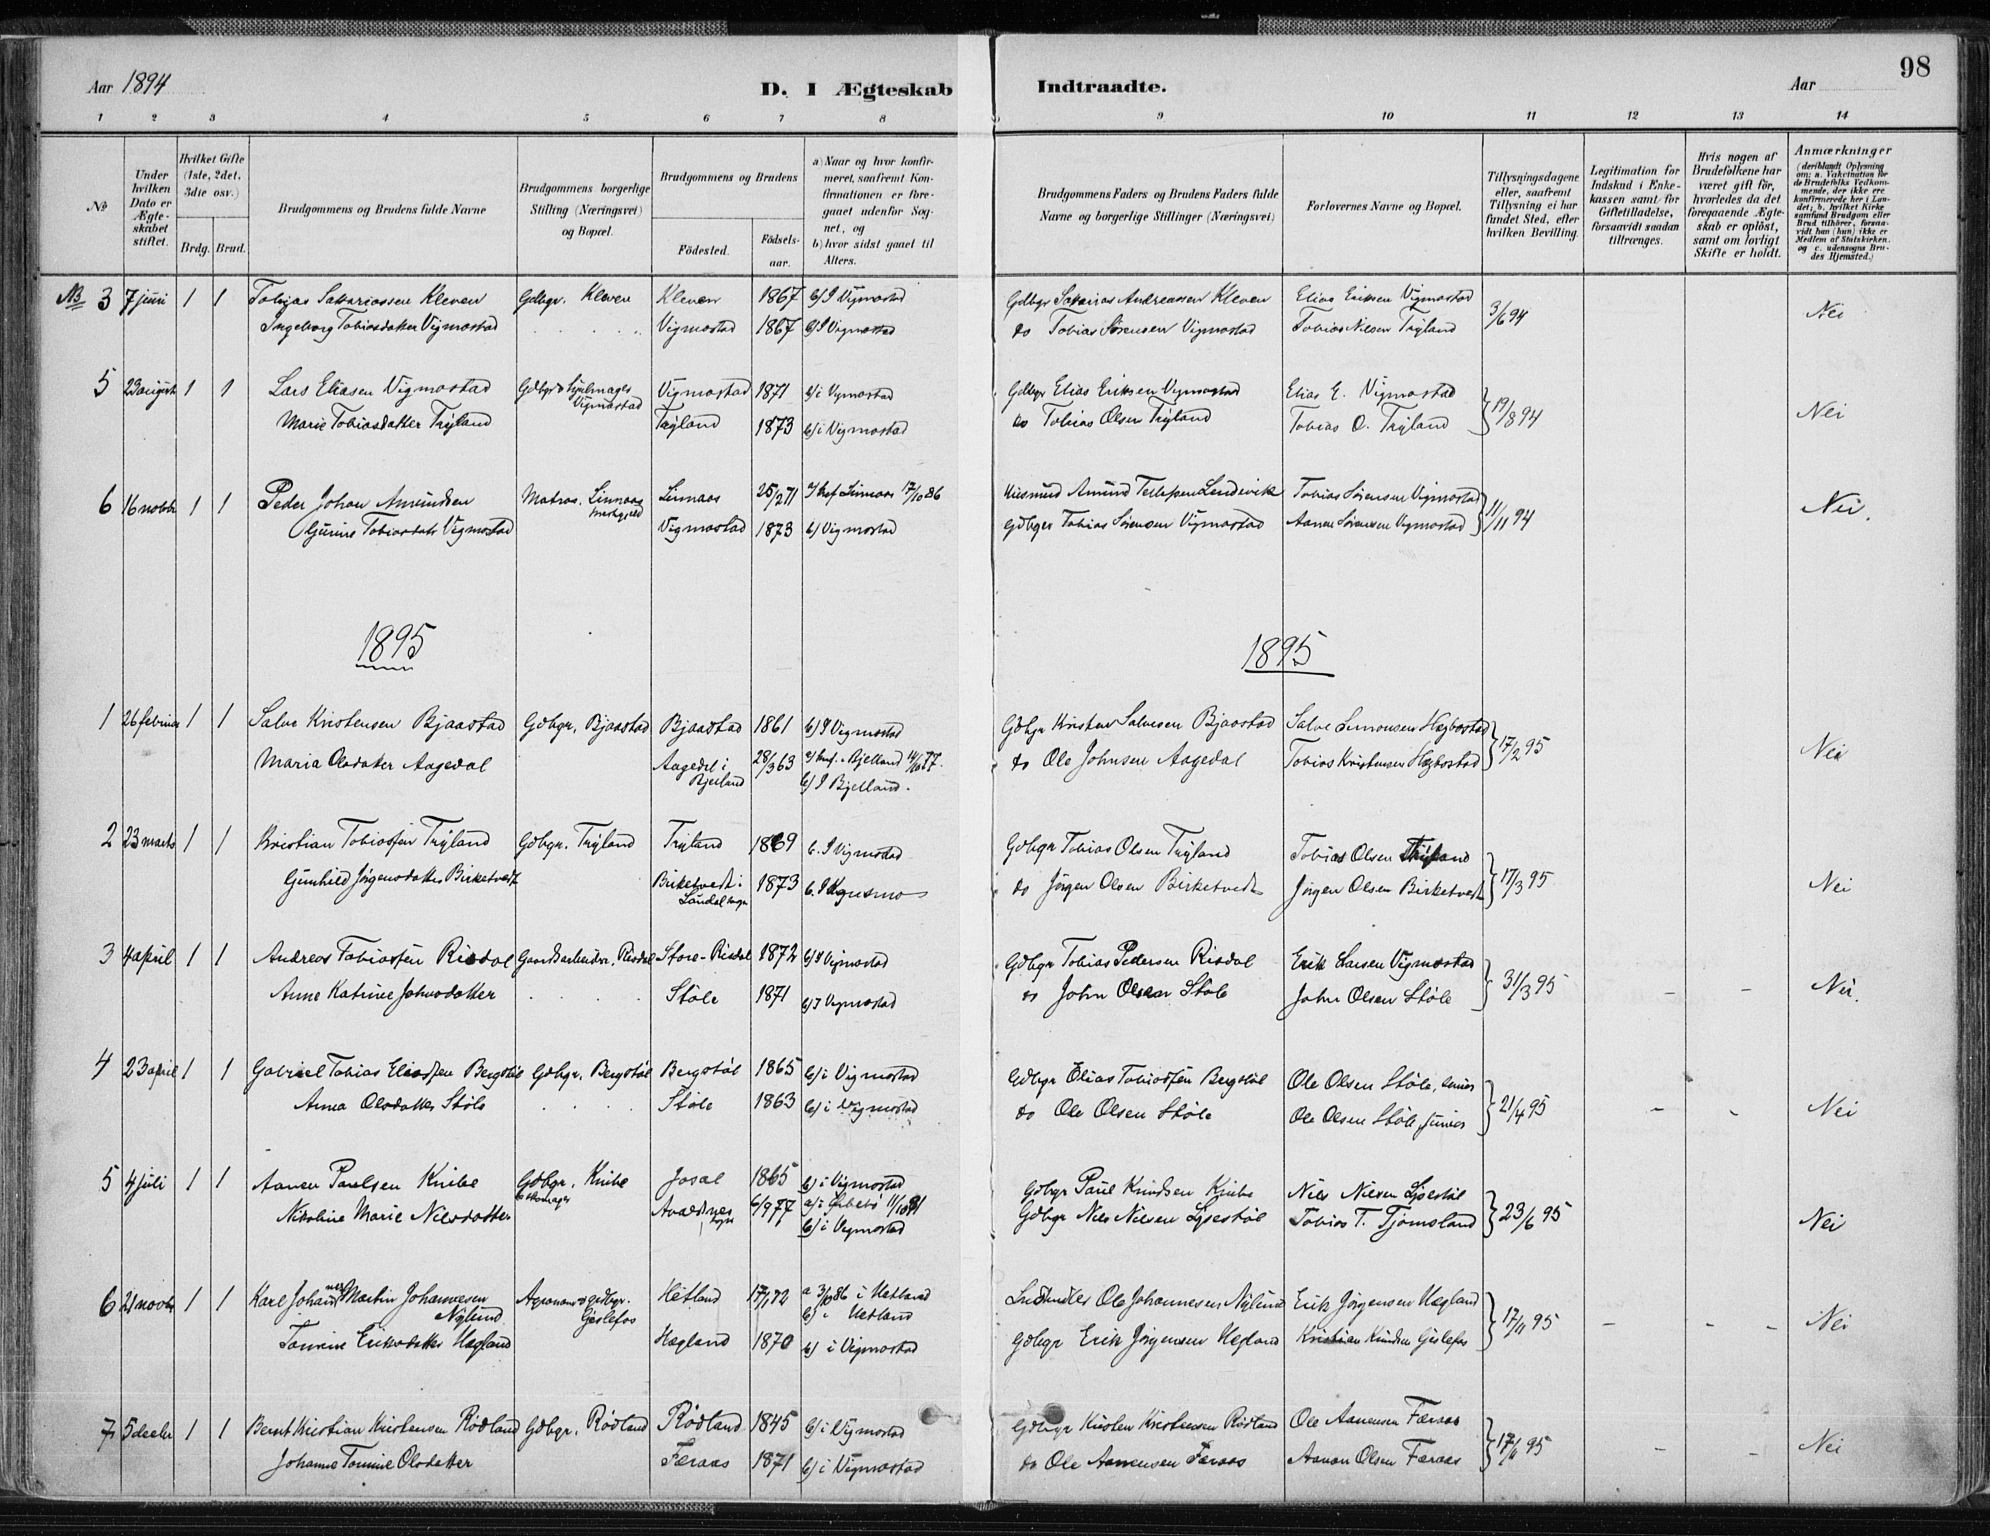 98
Aar 1894 D. I Ægteskab Indtraadte. Aar
1 2 3 4 5 6 7 8 9 10 11 12 13 14
№
Under hvilken Dato er Ægte-skabet stiftet.
Hvilket Gifte (1ste, 2det, 3die osv.)
Brdg. Brud.
Brudgommens og Brudens fulde Navne
Brudgommens borgerlige Stilling (Næringsvei) og Bopæl.
Brudgommens og Brudens
Födested. Födsels-aar.
a) Naar og hvor konfir-meret, saafremt Kon-firmationen er fore-gaaet udenfor Sog-net, og
b) hvor sidst gaaet til Alters.
Brudgommens Faders og Brudens Faders fulde Navne og borgerlige Stillinger (Næringsvei)
Forlovernes Navne og Bopæl.
Tillysningsdagene eller, saafremt Tillysning ei har fundet Sted, efter hvilken Bevilling.
Legitimation for Indskud i Enke-kassen samt for Giftetilladelse, forsaavidt saadan tiltrænges.
Hvis nogen af Brudefolkene har været gift för, hvorledes da det foregaaende Ægte-skab er oplöst, samt om lovligt Skifte er holdt.
Anmærkninger (deriblandt Oplysning om: a. Vakcination for de Brudefolks Vedkom-mende, der ikke ere konfirmerede her i Lan-det; b. hvilket Kirke samfund Brudgom eller Brud tilhörer, forsaa-vidt han (hun) ikke er Medlem af Statskirken. og c. udensogns Bru-des Hjemsted.)
NB 3 7 juni 1 1 Tobias Sakariassen Kleven Gdbgr. Kleven Kleven 1867 b/ I Vigmostad Gdbgr Sakarias Andreassen Kleven Elias Eriksen Vigmostad 3/6 94 Nei
Ingeborg Tobiasdatter Vigmostad Vigmostad 1867 b/ I Vigmostad do Tobias Sørensen Vigmostad Tobias Nilsen Trÿland
5 23 august 1 1 Lars Eliasen Vigmostad Gdbgr & Hjulmager Vigmostad Vigmostad 1871 b/ i Vigmostad Gdbgr Elias Eriksen Vigmostad Elias E. Vigmostad 19/8 94 Nei
Marie Tobiasdatter Trÿland Trÿland 1873 b/ i Vigmostad do Tobias Olsen Trÿland Tobias O. Trÿland
6 16 novbr 1 1 Peder Johan Amundsen Matros. 25/2 71 17/10 86 Amund Tobias Sørensen Vigmostad 11/11 94 Nei.
Gurine Tobiasdatt. Vigmostad Vigmostad 1873 b/ Vigmostad Gdbgr Tobias Sørensen Vigmostad Aanen Sørensen Vigmostad
1895 1895
1 26 februar 1 1 Salve Kristensen Bjaastad Gdbgr. Bjaastad Bjaastad 1861 b/ I Vigmostad Gdbgr Kristen Salvesen Bjaastad Salve Simonsen Hægbostad 17/2 95 Nei
Maria Olsdatter Aagedal Aagedal i Bjelland 28/3 63 a/ konf. i Bjelland 77. do Ole Johnsen Aagedal Tobias Kristensen Hægbostad
b/ I Bjelland.
2 23 marts 1 1 Kristian Tobiassen Trÿland Gdbgr. Trÿland Trÿland 1869 b. I Vigmostad Gdbgr Tobias Olsen Trÿland Tobias Olsen Trÿland 17/3 95 Nei
Gunhild Jörgensdatter Birketvedt Birketvedt i 1873 b. I do Jörgen Olsen Birketvedt Jörgen Olsen Birketvedt
3 4 april 1 1 Andreas Tobiassen Risdal Gaardsarbeider. Risdal Store-Risdal 1872 b/ I Vigmostad Gdbgr Tobias Pedersen Risdal Erik Larsen Vigmostad 31/3 95 – – Nei.
Anne Katrine Johnsdatter Støle 1871 b/ I Vigmostad do John Olsen Støle John Olsen Støle
4 23 april 1 1 Gabriel Tobias Eliassen Bergstøl Gdbgr. Bergstøl Bergstøl 1865 b/ i Vigmostad Gdbgr Elias Tobiassen Bergstøl Ole Olsen Støle, senior 21/4 95 – – Nei
Anna Olsdatter Støle Støle 1863 b/ i Vigmostad do Ole Olsen Støle Ole Olsen Støle, junior
5 4 juli 1 1 Aanen Paulsen Knibe Gdbgr. Knibe Josal 1865 b/ i Vigmostad Gdbgr Paul Knudsen Knibe Niels Nielsen Ljosestøl 23/6 95 Nei
Nikoline Marie Nilsdatter & skomager 6/9 77 a/ i 11/10 91 Gdbgr Nils Nilsen Ljosestøl Tobias T. Tjomsland
b/ i Vigmostad
6 21 novbr 1 1 Karl Johannes Martin Johannesen Nÿlund Agronom & gdbgr. Gislefos Hetland 17/1 72 a 3/10 86 i Hetland Ole Johannesen Nÿlund Erik Jörgensen Hægland 17/11 95 – – – Nei
b/ i Hetland
Tomine Eriksdatter Hægland Hægland 1870 b/ i Vigmostad Gdbgr Erik Jörgensen Hægland Kristian Knudsen Gislefos
7 5 decbr 1 1 Bernt Kristian Kristensen Rödland Gdbgr. Rödland Rödland 1845 b/ i Vigmostad Gdbgr Kristen Kristensen Rödland Ole Aanensen Færaas 17/11 95 – – Nei
Johanne Tomine Olsdatter Færaas 1871 b/ i Vigmostad do Ole Aanensen Færaas Aanen Olsen Færaas